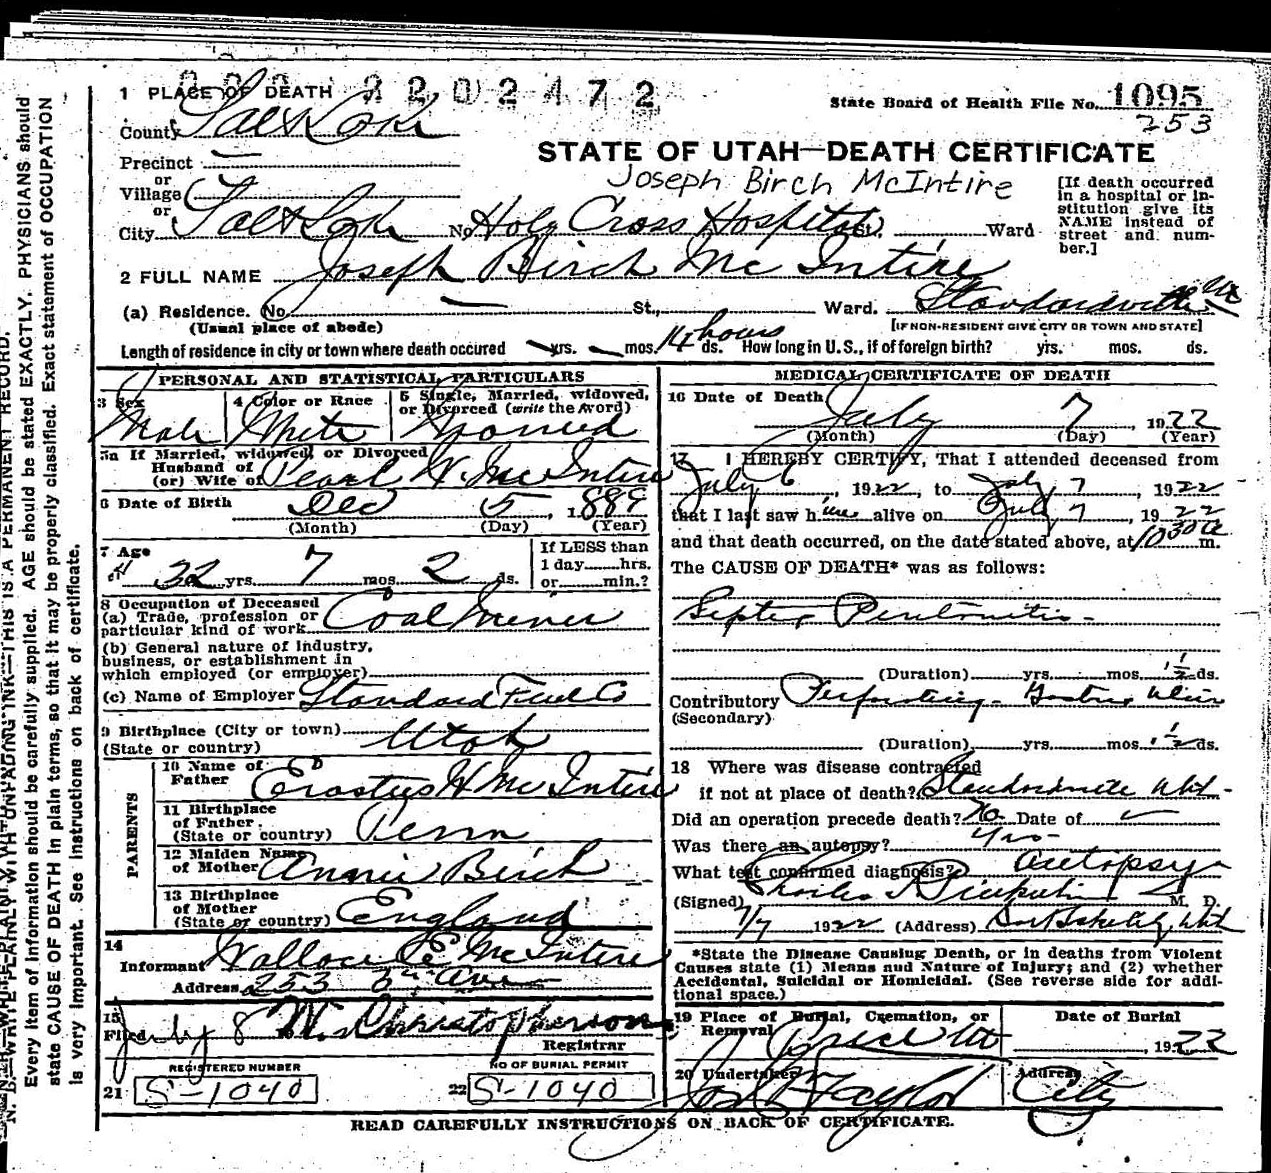 2202472
1 PLACE OF DEATH
State Board of Health File No. 1095
253
County Salt Lake
STATE OF UTAH—DEATH CERTIFICATE
Precinct
Joseph Birch McIntire
or
Village
or
City Salt Lake No. Holy Cross Hospital St. Ward
[If death occurred in a hospital or institution give its NAME instead of street and number.]
2 FULL NAME Joseph Birch McIntire
(a) Residence. No. — St., Ward. Standardville Ut
(Usual place of abode)
[IF NON-RESIDENT GIVE CITY OR TOWN AND STATE]
Length of residence in city or town where death occured — yrs. — mos. 14 hours ds. How long in U.S., if of foreign birth? yrs. mos. ds.
PERSONAL AND STATISTICAL PARTICULARS
3 Sex
Male
4 Color or Race
White
5 Single, Married, widowed, or Divorced (write the word)
Married
5a If Married, widowed, or Divorced
Husband of
(or) Wife of Pearl V. McIntire
6 Date of Birth Dec 5, 1889
(Month) (Day) (Year)
7 Age
32 yrs. 7 mos. 2 ds.
If LESS than
1 day hrs.
or min.?
8 Occupation of Deceased
(a) Trade, profession or
particular kind of work Coal Miner
(b) General nature of Industry,
business, or establishment in
which employed (or employer)
(c) Name of Employer Standard Fuel Co
9 Birthplace (City or town)
(State or country) Utah
PARENTS
10 Name of
Father Erastus W McIntire
11 Birthplace
of Father
(State or country) Penn
12 Maiden Name
of Mother Annie Birch
13 Birthplace
of Mother
(State or country) England
14
Informant Wallace E McIntire
Address 253 6th Ave
15
Filed July 8 W. Christopherson
Registrar
REGISTERED NUMBER
21 S-1040
NO OF BURIAL PERMIT
22 S-1040
MEDICAL CERTIFICATE OF DEATH
16 Date of Death
July 7, 1922
(Month) (Day) (Year)
17 I HEREBY CERTIFY, That I attended deceased from
July 6, 1922, to July 7, 1922
that I last saw him alive on July 7, 1922
and that death occurred, on the date stated above, at 10 30 a m.
The CAUSE OF DEATH* was as follows:
Septic Peritonitis -
(Duration) yrs. mos. 1 1/2 ds.
Contributory Perforating Gastric Ulcer
(Secondary)
(Duration) yrs. mos. 1 1/2 ds.
18 Where was disease contracted
if not at place of death? Standardville Utah -
Did an operation precede death? No Date of
Was there an autopsy? Yes -
What test confirmed diagnosis? Autopsy
(Signed) Charles M. D.
7/7 1922 (Address) Salt Lake City, Utah
*State the Disease Causing Death, or in deaths from Violent
Causes state (1) Means and Nature of Injury; and (2) whether
Accidental, Suicidal or Homicidal. (See reverse side for addi-
tional space.)
19 Place of Burial, Cremation, or
Removal Price Ut
Date of Burial
, 1922
20 Undertaker
Taylor
Address
City
READ CAREFULLY INSTRUCTIONS ON BACK OF CERTIFICATE.
N. B.—WRITE PLAINLY WITH UNFADING INK—THIS IS A PERMANENT RECORD.
Every item of information should be carefully supplied. AGE should be stated EXACTLY. PHYSICIANS should
state CAUSE OF DEATH in plain terms, so that it may be properly classified. Exact statement of OCCUPATION
is very important. See instructions on back of certificate.